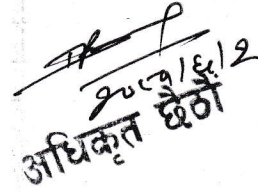 २०८१/६/२
अधिकृत छैठौं